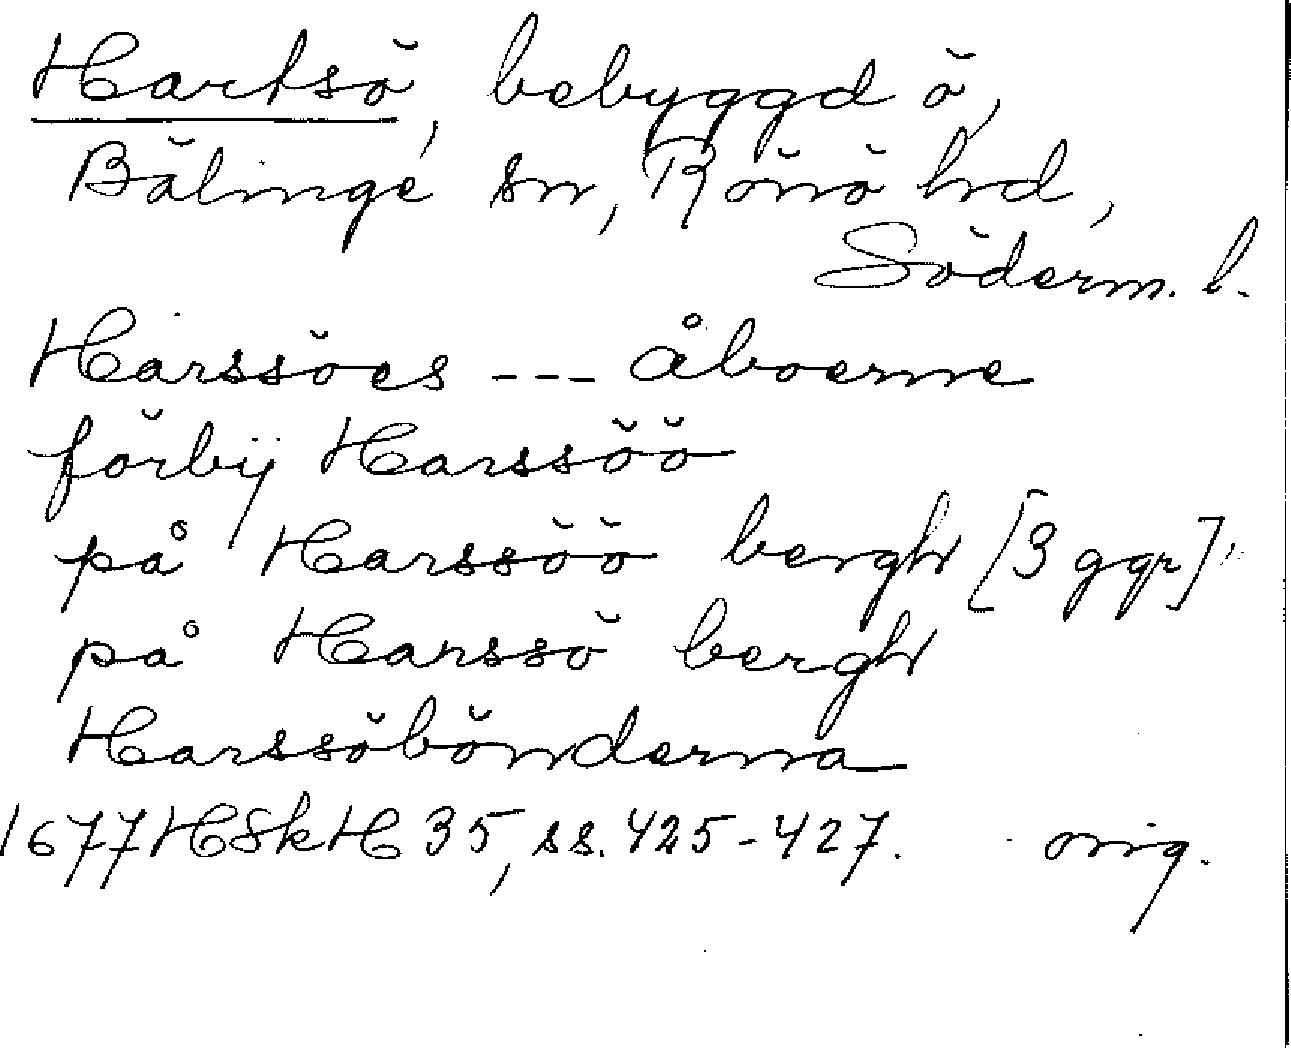 Hartsö, bebyggd ö,
Bälinge sn, Rönö hd,
Söderm. l.
Harssöes --- åboerne
förbij Harssöö
på Harssöö bergh [3 ggr]
på Harssö bergh
Harssöbönderna
1677 HSkH 35, ss. 425-427. orig.